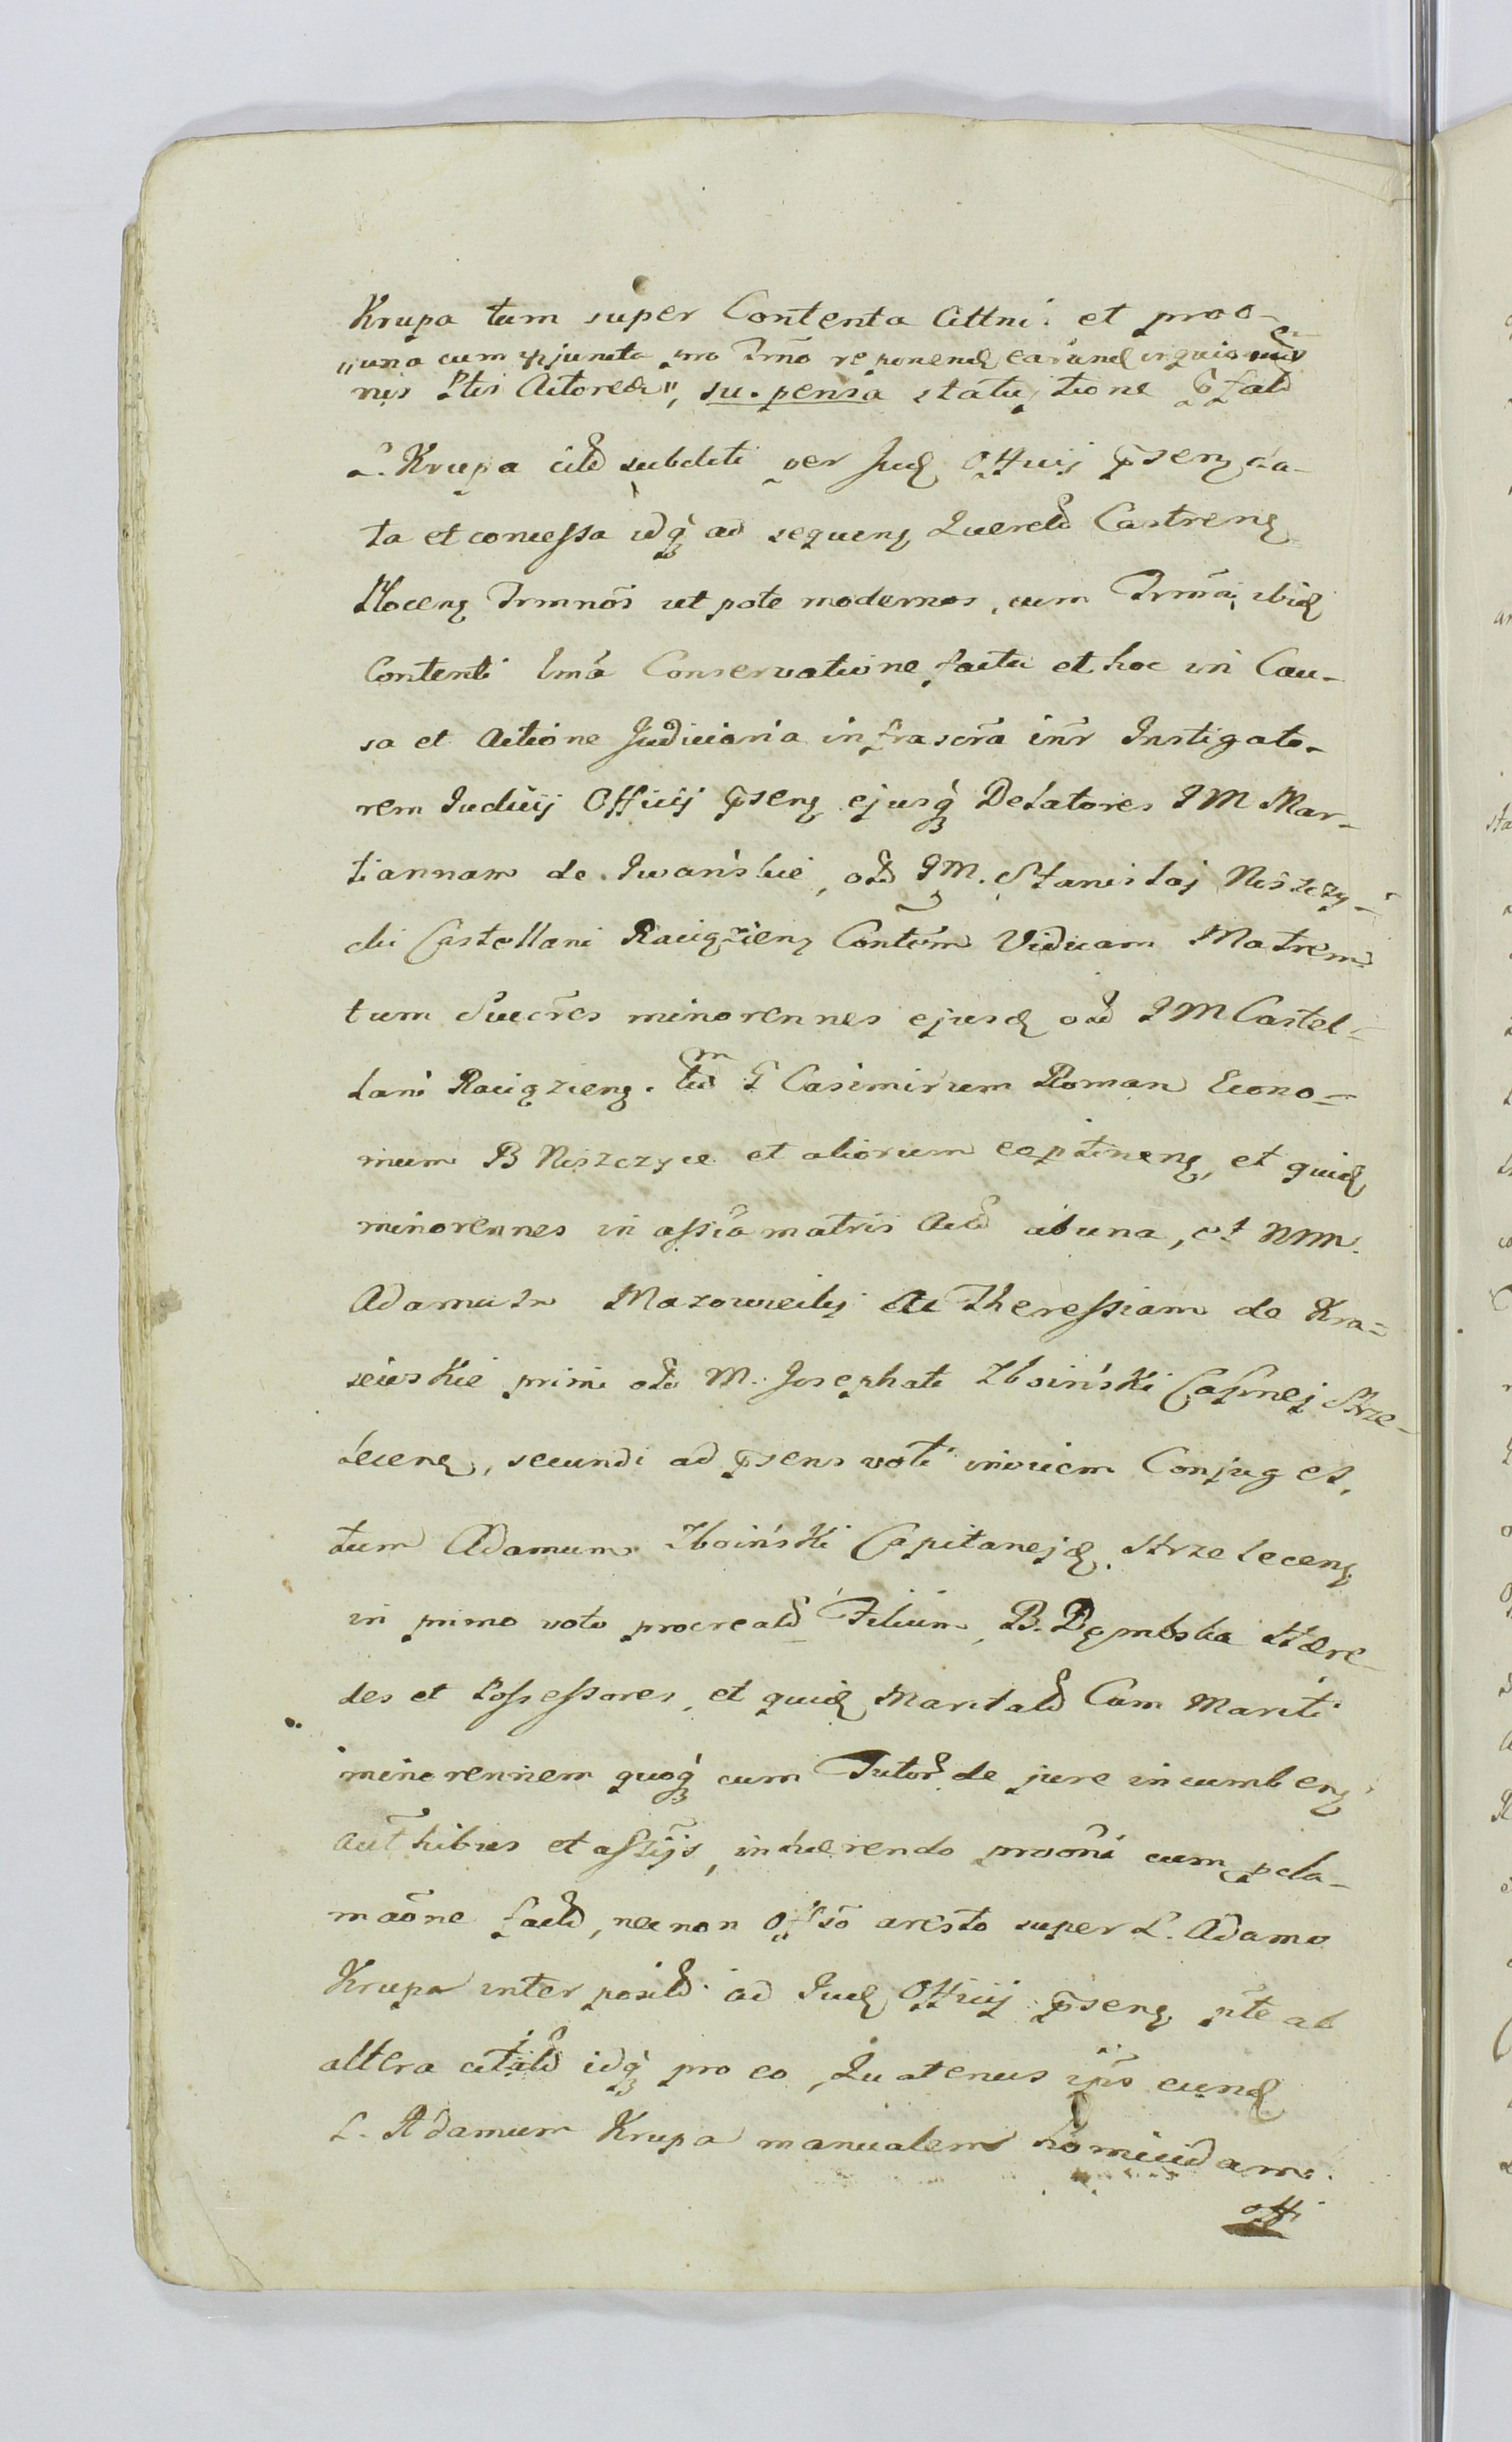 Krupa tum super Contenta Cittni. et proo-
„una cum juncta pro Trm̄o reponend earund
nis Ptis Actoreæ", suspensa statutione
L. Krupa subditi per Jud Officij psens da-
ta et concessa idq ad sequens Querel Castrens
Plocens Trmnos ut pote modernos, cum ibid
Contenti Conservatione facta et hoc in Cau-
sa et Actione Judiciaria infrascra inr Instigato-
rem Judicij Officij psens ejusq Delatores IM Mar-
tiannam de Iwańskie, olim IM. Stanislaj Niszczy-
cki Castellani Raciąziens Viduam Matrem
tum Succres minorennes ejusd olim IM Castel-
lani Raciąziens. tum G Casimirum Roman Econo-
mum B Niszczyce et aliorum et quid
minorennes in assia matris ab una, et MM.
Adamum Mazowiecky Ac Theressiam de Kra-
siewskie primi olim M. Josephati Zboiński Capnej Strze-
lecens, secundi ad psens voti invicem Conjuges,
tum Adamum Zboiński Capitanejd. Strzelecens
in primo voto procreat Filium, B. Dęmbska Hære-
des et Possessores, et quid Maritat Cum Mariti
minorennem quoq cum Tutor de jure incumbens
authibus et assijs, inhærendo cum pcla-
maone fact, nec non Offso aresto super L. Adamo
Krupa interposit ad Jud Officij psens pte ab
altera citat idq pro eo, Quatenus ipis eund
L. Adamum Krupa manualem homicidam
offi